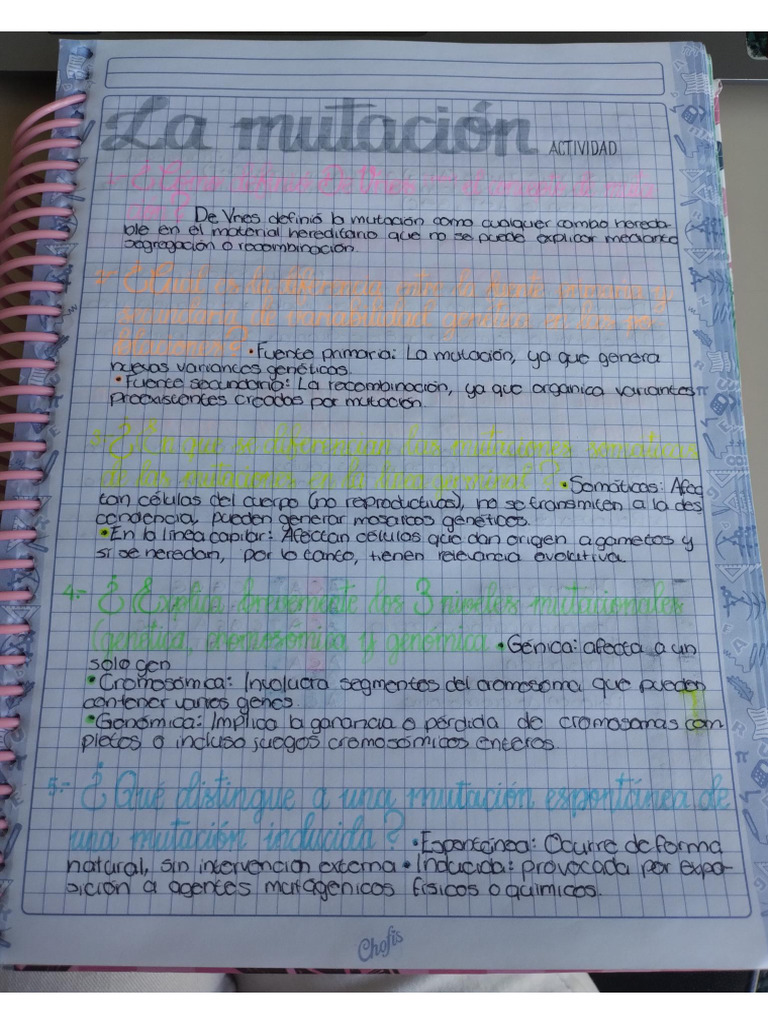 La mutación ACTIVIDAD
1.- ¿Cómo definió De Vries el concepto de muta
ción?
De Vries definió la mutación como cualquier cambio hereda-
ble en el material hereditario que no se puede explicar mediante
segregación o recombinación.
2.- ¿Cuál es la diferencia entre la fuente primaria y
secundaria de variabilidad genética en las po-
blaciones? • Fuente primaria: La mutación, ya que genera
nuevas variantes genéticas.
• Fuente secundaria: La recombinación, ya que organica variantes
preexistentes creadas por mutación.
3.- ¿En que se diferencian las mutaciones somáticas
de las mutaciones en la línea germinal? • Somáticas: Afec
tan células del cuerpo (no reproductivas), no se transmiten a la des
cendencia, pueden generar mosaicos genéticos.
• En la línea capilar: Afectan células que dan origen a gametos y
si se heredan, por lo tanto, tienen relevancia evolutiva.
4.- ¿Explica brevemente los 3 niveles mutacionales
(genética, cromosómica y genómica • Génica: afecta a un
solo gen
• Cromosómica: Involucra segmentos del cromosoma que pueden
contener varios genes.
• Genómica: Implica la ganancia o pérdida de cromosomas com
pletos o incluso juegos cromosómicos enteros.
5.- ¿Qué distingue a una mutación espontánea de
una mutación inducida? • Espontánea: Ocurre de forma
natural, sin intervención externa • Inducida: provocada por expo-
sición a agentes mutagénicos físicos o químicos.
Chofis